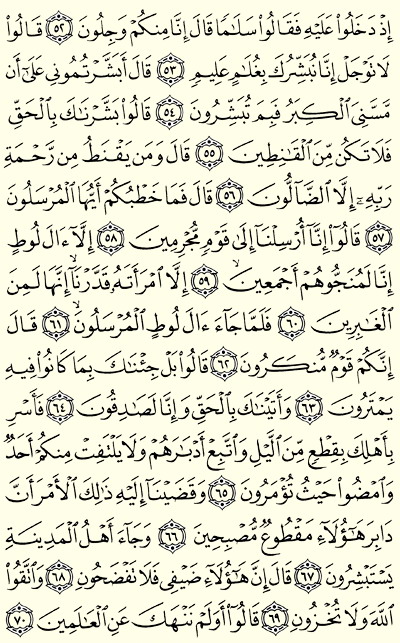 إِذْ دَخَلُوا۟ عَلَيْهِ فَقَالُوا۟ سَلَـٰمًا قَالَ إِنَّا مِنكُمْ وَجِلُونَ ٥٢ قَالُوا۟
لَا تَوْجَلْ إِنَّا نُبَشِّرُكَ بِغُلَـٰمٍ عَلِيمٍ ٥٣ قَالَ أَبَشَّرْتُمُونِى عَلَىٰٓ أَن
مَّسَّنِىَ ٱلْكِبَرُ فَبِمَ تُبَشِّرُونَ ٥٤ قَالُوا۟ بَشَّرْنَـٰكَ بِٱلْحَقِّ
فَلَا تَكُن مِّنَ ٱلْقَـٰنِطِينَ ٥٥ قَالَ وَمَن يَقْنَطُ مِن رَّحْمَةِ
رَبِّهِۦٓ إِلَّا ٱلضَّآلُّونَ ٥٦ قَالَ فَمَا خَطْبُكُمْ أَيُّهَا ٱلْمُرْسَلُونَ
٥٧ قَالُوٓا۟ إِنَّآ أُرْسِلْنَآ إِلَىٰ قَوْمٍ مُّجْرِمِينَ ٥٨ إِلَّآ ءَالَ لُوطٍ
إِنَّا لَمُنَجُّوهُمْ أَجْمَعِينَ ٥٩ إِلَّا ٱمْرَأَتَهُۥ قَدَّرْنَآ إِنَّهَا لَمِنَ
ٱلْغَـٰبِرِينَ ٦٠ فَلَمَّا جَآءَ ءَالَ لُوطٍ ٱلْمُرْسَلُونَ ٦١ قَالَ
إِنَّكُمْ قَوْمٌ مُّنكَرُونَ ٦٢ قَالُوا۟ بَلْ جِئْنَـٰكَ بِمَا كَانُوا۟ فِيهِ
يَمْتَرُونَ ٦٣ وَأَتَيْنَـٰكَ بِٱلْحَقِّ وَإِنَّا لَصَـٰدِقُونَ ٦٤ فَأَسْرِ
بِأَهْلِكَ بِقِطْعٍ مِّنَ ٱلَّيْلِ وَٱتَّبِعْ أَدْبَـٰرَهُمْ وَلَا يَلْتَفِتْ مِنكُمْ أَحَدٌ
وَٱمْضُوا۟ حَيْثُ تُؤْمَرُونَ ٦٥ وَقَضَيْنَآ إِلَيْهِ ذَٰلِكَ ٱلْأَمْرَ أَنَّ
دَابِرَ هَـٰٓؤُلَآءِ مَقْطُوعٌ مُّصْبِحِينَ ٦٦ وَجَآءَ أَهْلُ ٱلْمَدِينَةِ
يَسْتَبْشِرُونَ ٦٧ قَالَ إِنَّ هَـٰٓؤُلَآءِ ضَيْفِى فَلَا تَفْضَحُونِ ٦٨ وَٱتَّقُوا۟
ٱللَّهَ وَلَا تُخْزُونِ ٦٩ قَالُوٓا۟ أَوَلَمْ نَنْهَكَ عَنِ ٱلْعَـٰلَمِينَ ٧٠